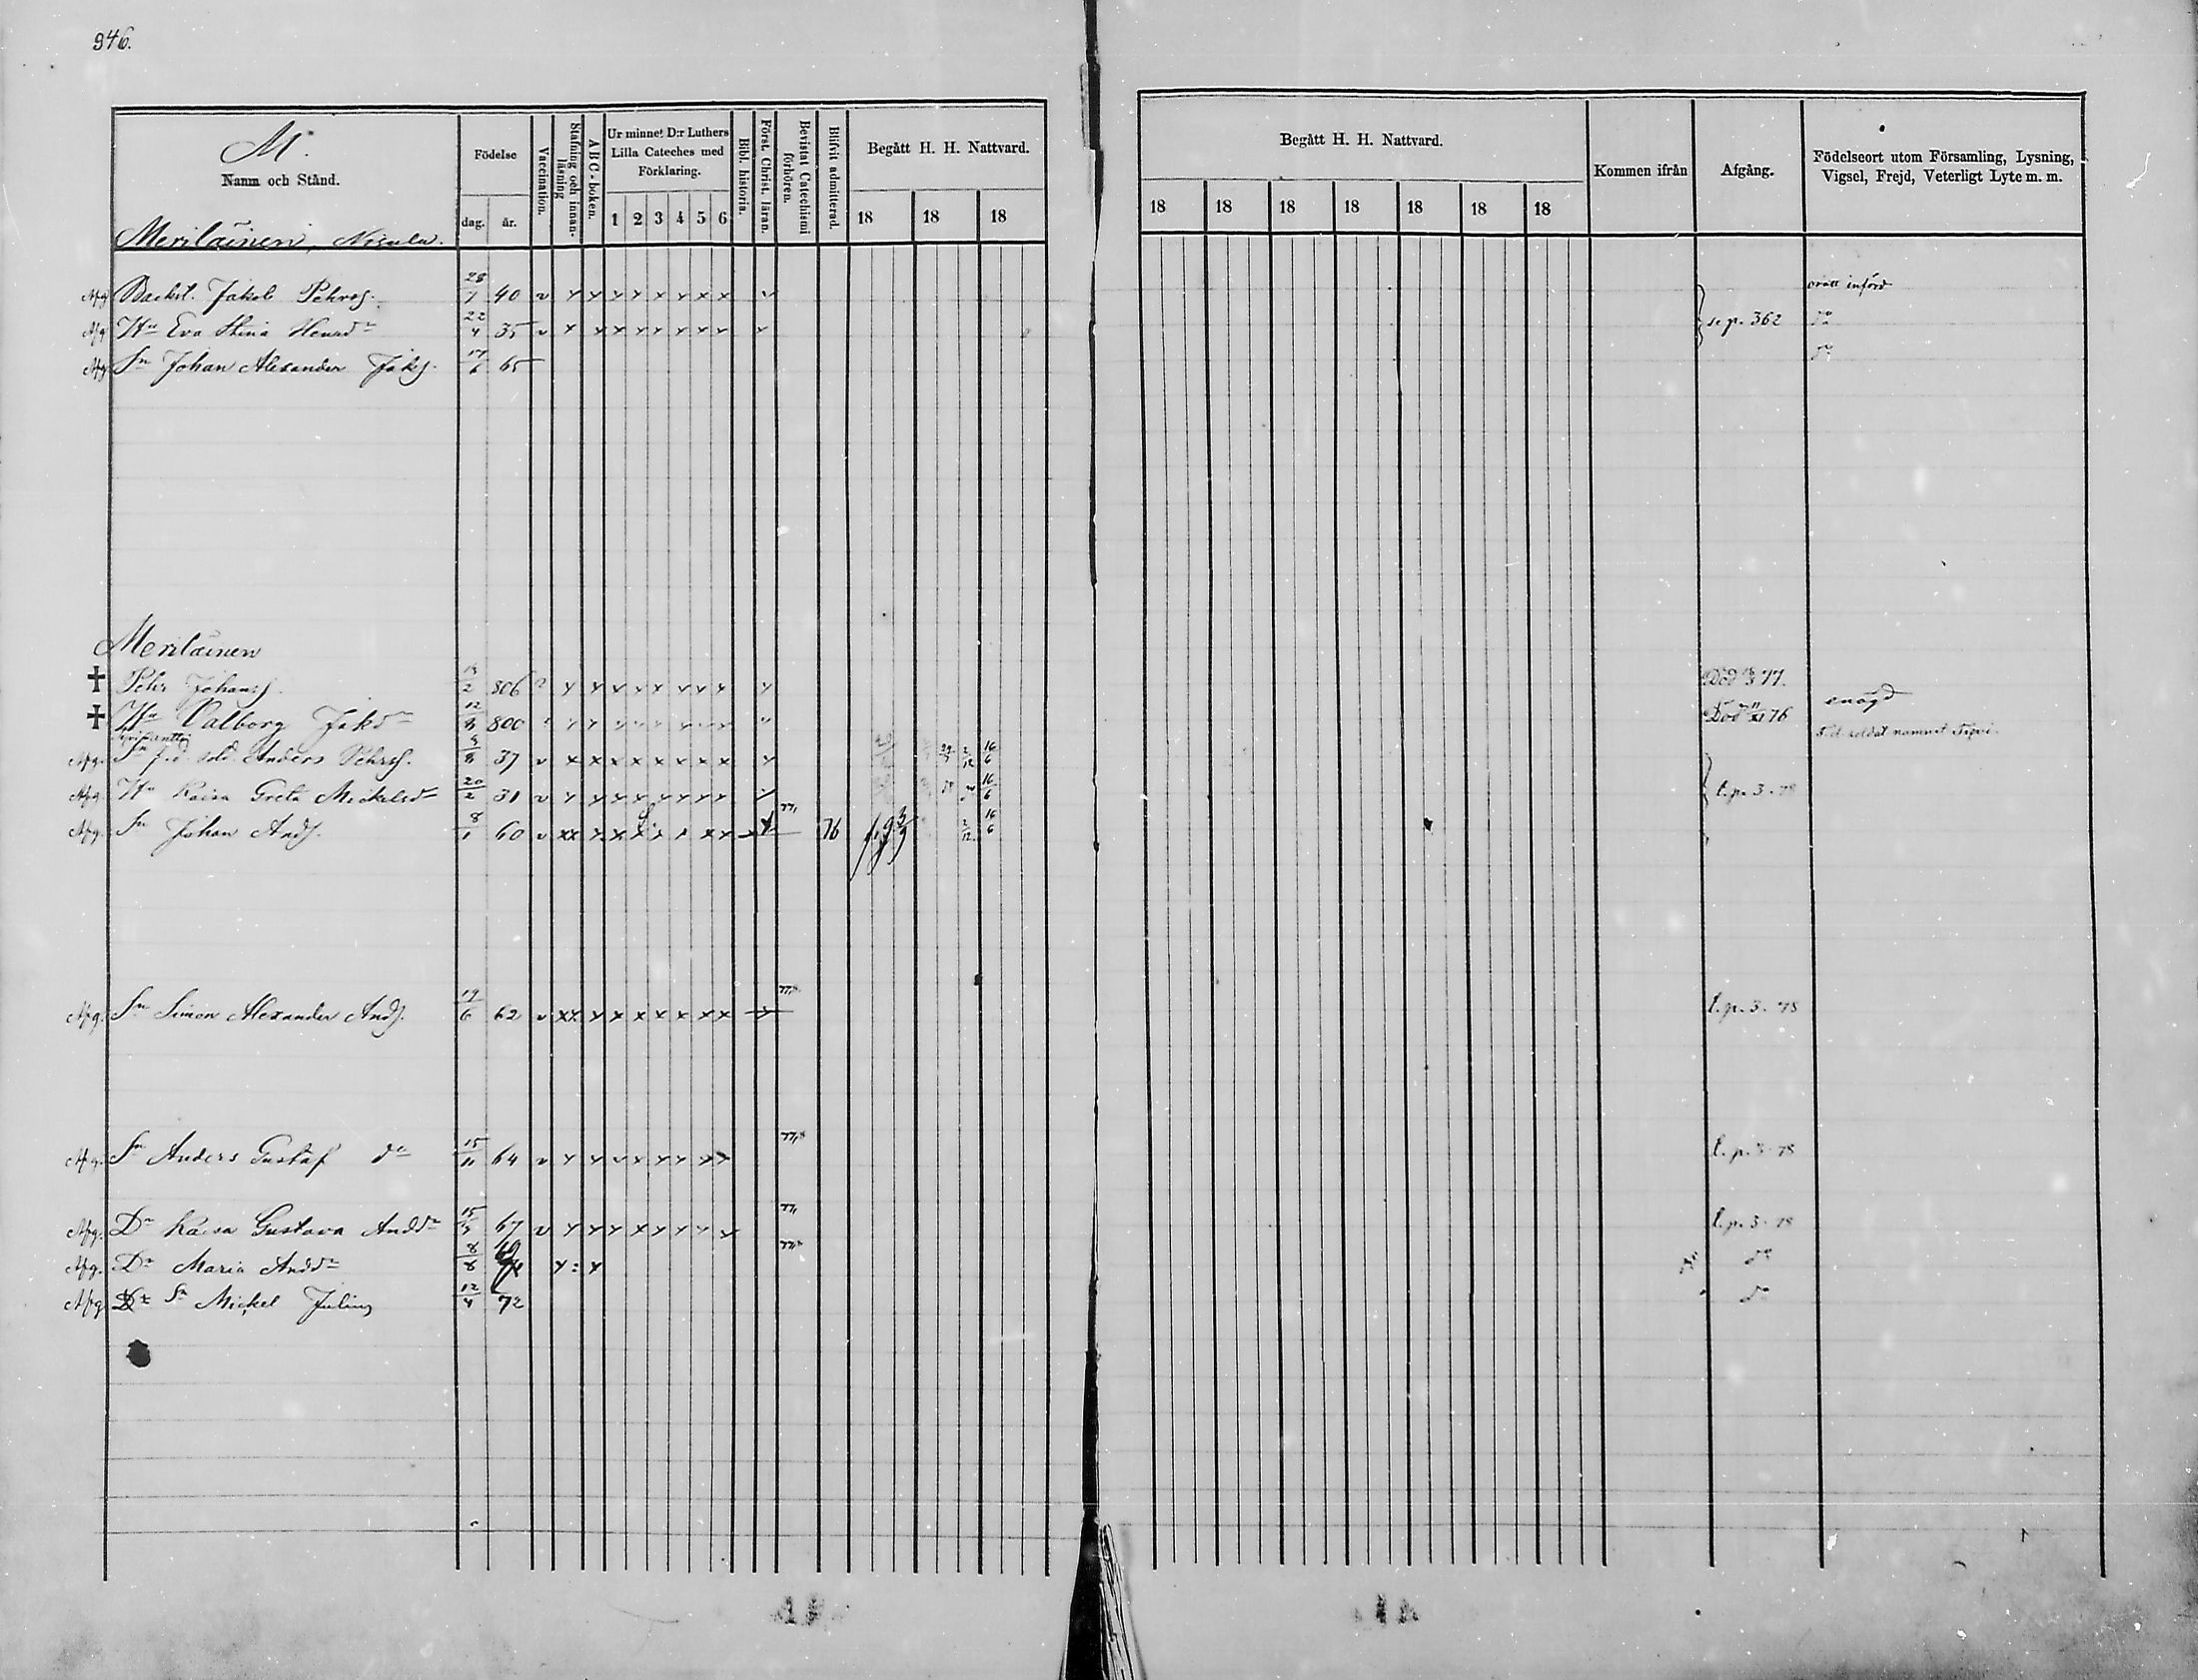 946.
M.
Namn och Stånd.
Födelse
dag. år.
Vaccination.
Stafning och innanläsning
A B C - boken.
Ur minnet D:r Luthers Lilla Cateches med Förklaring.
1 2 3 4 5 6
Bibl. historia.
Först. Christ. läran.
Bevistat Catechismi förhören.
Blifvit admitterad.
Begått H. H. Nattvard.
18 18 18
Begått H. H. Nattvard.
18 18 18 18 18 18 18
Kommen ifrån
Afgång.
Födelseort utom Församling, Lysning, Vigsel, Frejd, Veterligt Lyte m. m.
Meriläinen, Nisula.
Afg Backst. Jakob Pehrss. 28/7 40 v x x x x x x x x x orätt införd
Afg Hu Eva Stina Henrdr 22/4 35 v x x x x x x x x x se p. 362 do
Afg Sn Johan Alexander Jaks. 17/6 65 do
Meriläinen
† Pehr Johanss. 13/2 806 x x x x x x x x x Död 77.
† Hu Valborg Jaksdr 12/8 800 Död 76 enögd
Afg. Sn f.d. sold. Anders Pehrss. 37 v x x x x x x x x x 2/12 16/6 F.d. soldat namnet
Afg. Hu Kaisa Greta Mickelsdr 20/2 31 v x x x x x x x x x 16/6 t.p. 3. 78
Afg. Sn Johan Ands. 8/1 60 v xx x x x x x x x x 77, 76 2/12 16/6
Afg. Sn Simon Alexander Ands. 19/6 62 v xx x x x x x x x x 77, t.p. 3. 78
Afg. Sn Anders Gustaf do 15/11 64 v x x x x x x x x 77, t.p. 3 78
Afg. Dr Kaisa Gustava Andsdr 67 v x x x x x x x x 77, t.p. 3. 78
Afg. Dr Maria Andsdr 8/8 69 x : x 77, do
Afg Sn Mickel Julius 12/4 72 do